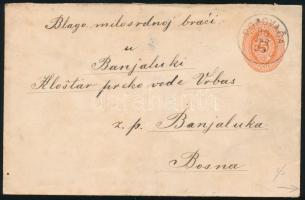 Blago milosrdnoj braći
u
Banjaluki
Kloštar preko vode Vrbas
z. p. Banjaluka
Bosna